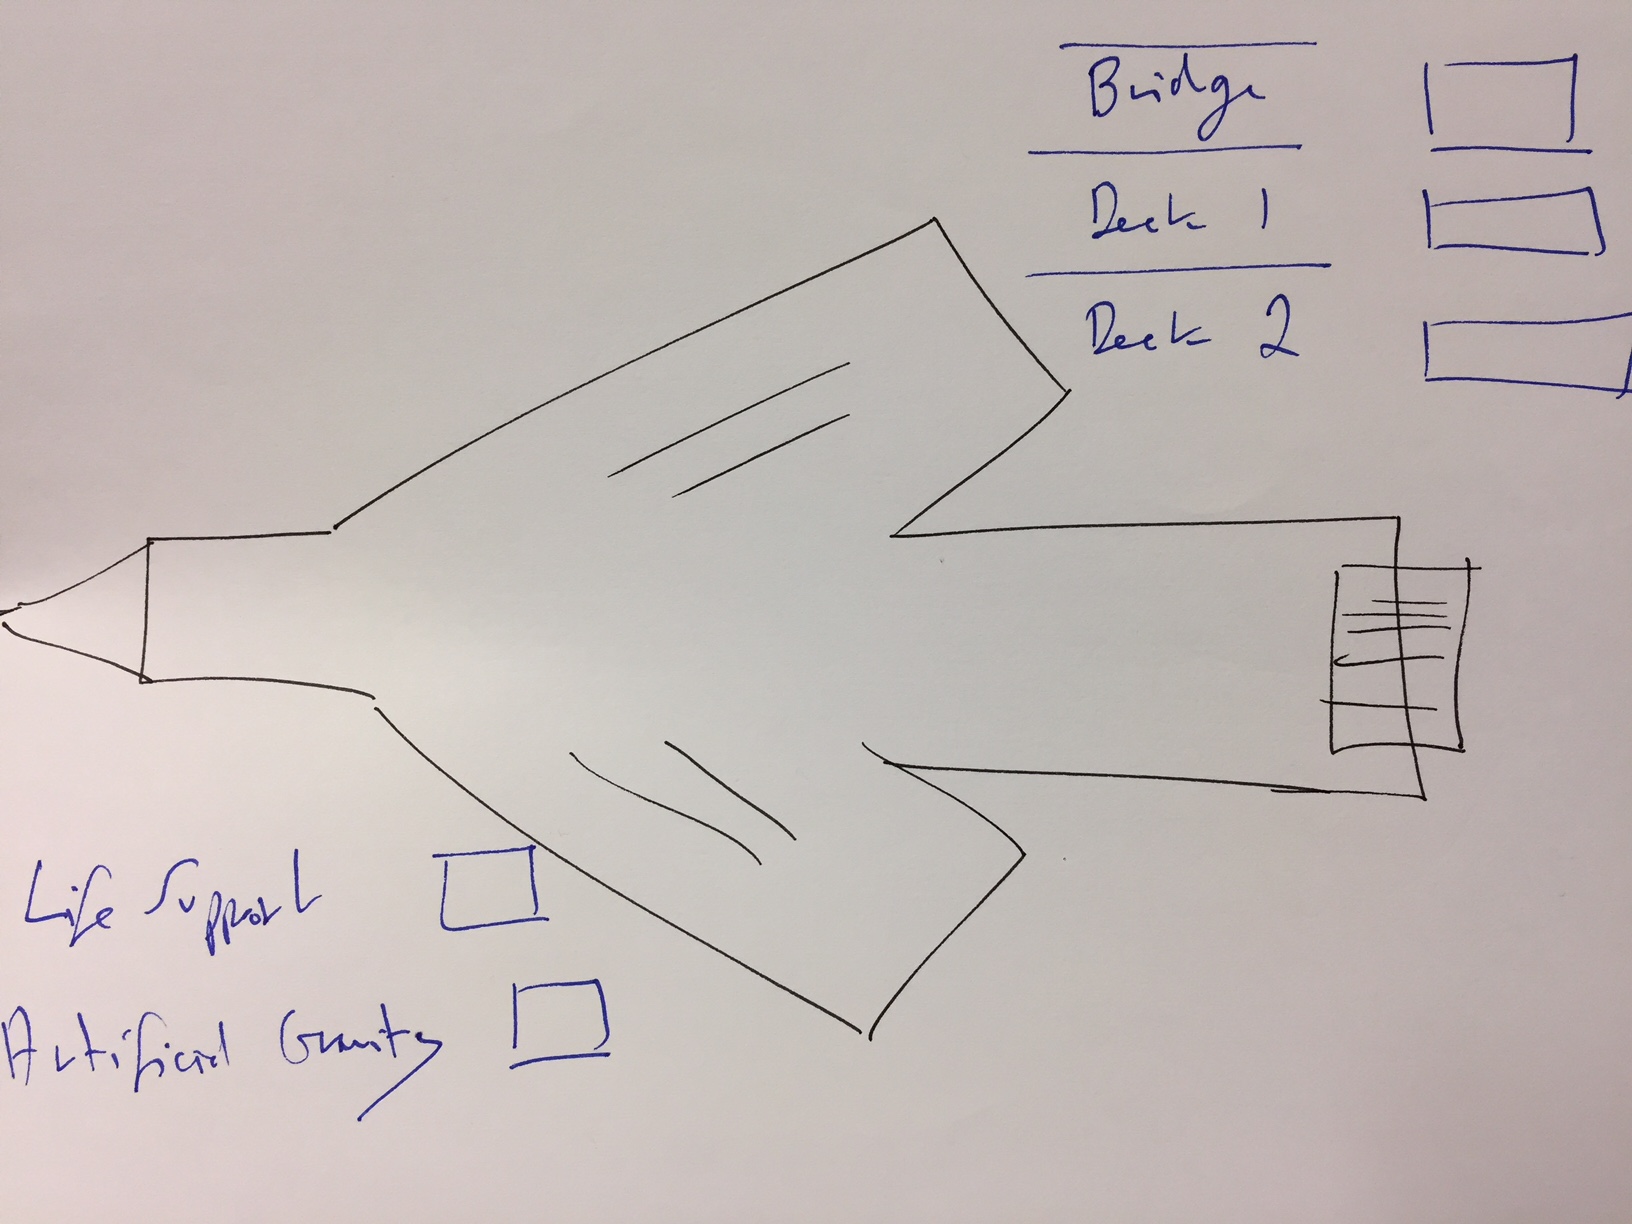 Bridge
Deck 1
Deck 2
Life Support
Artificial Gravity